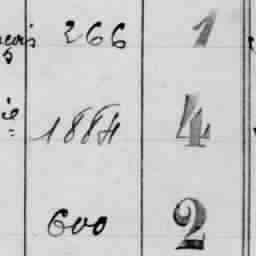 266 1
1884 4
600 2